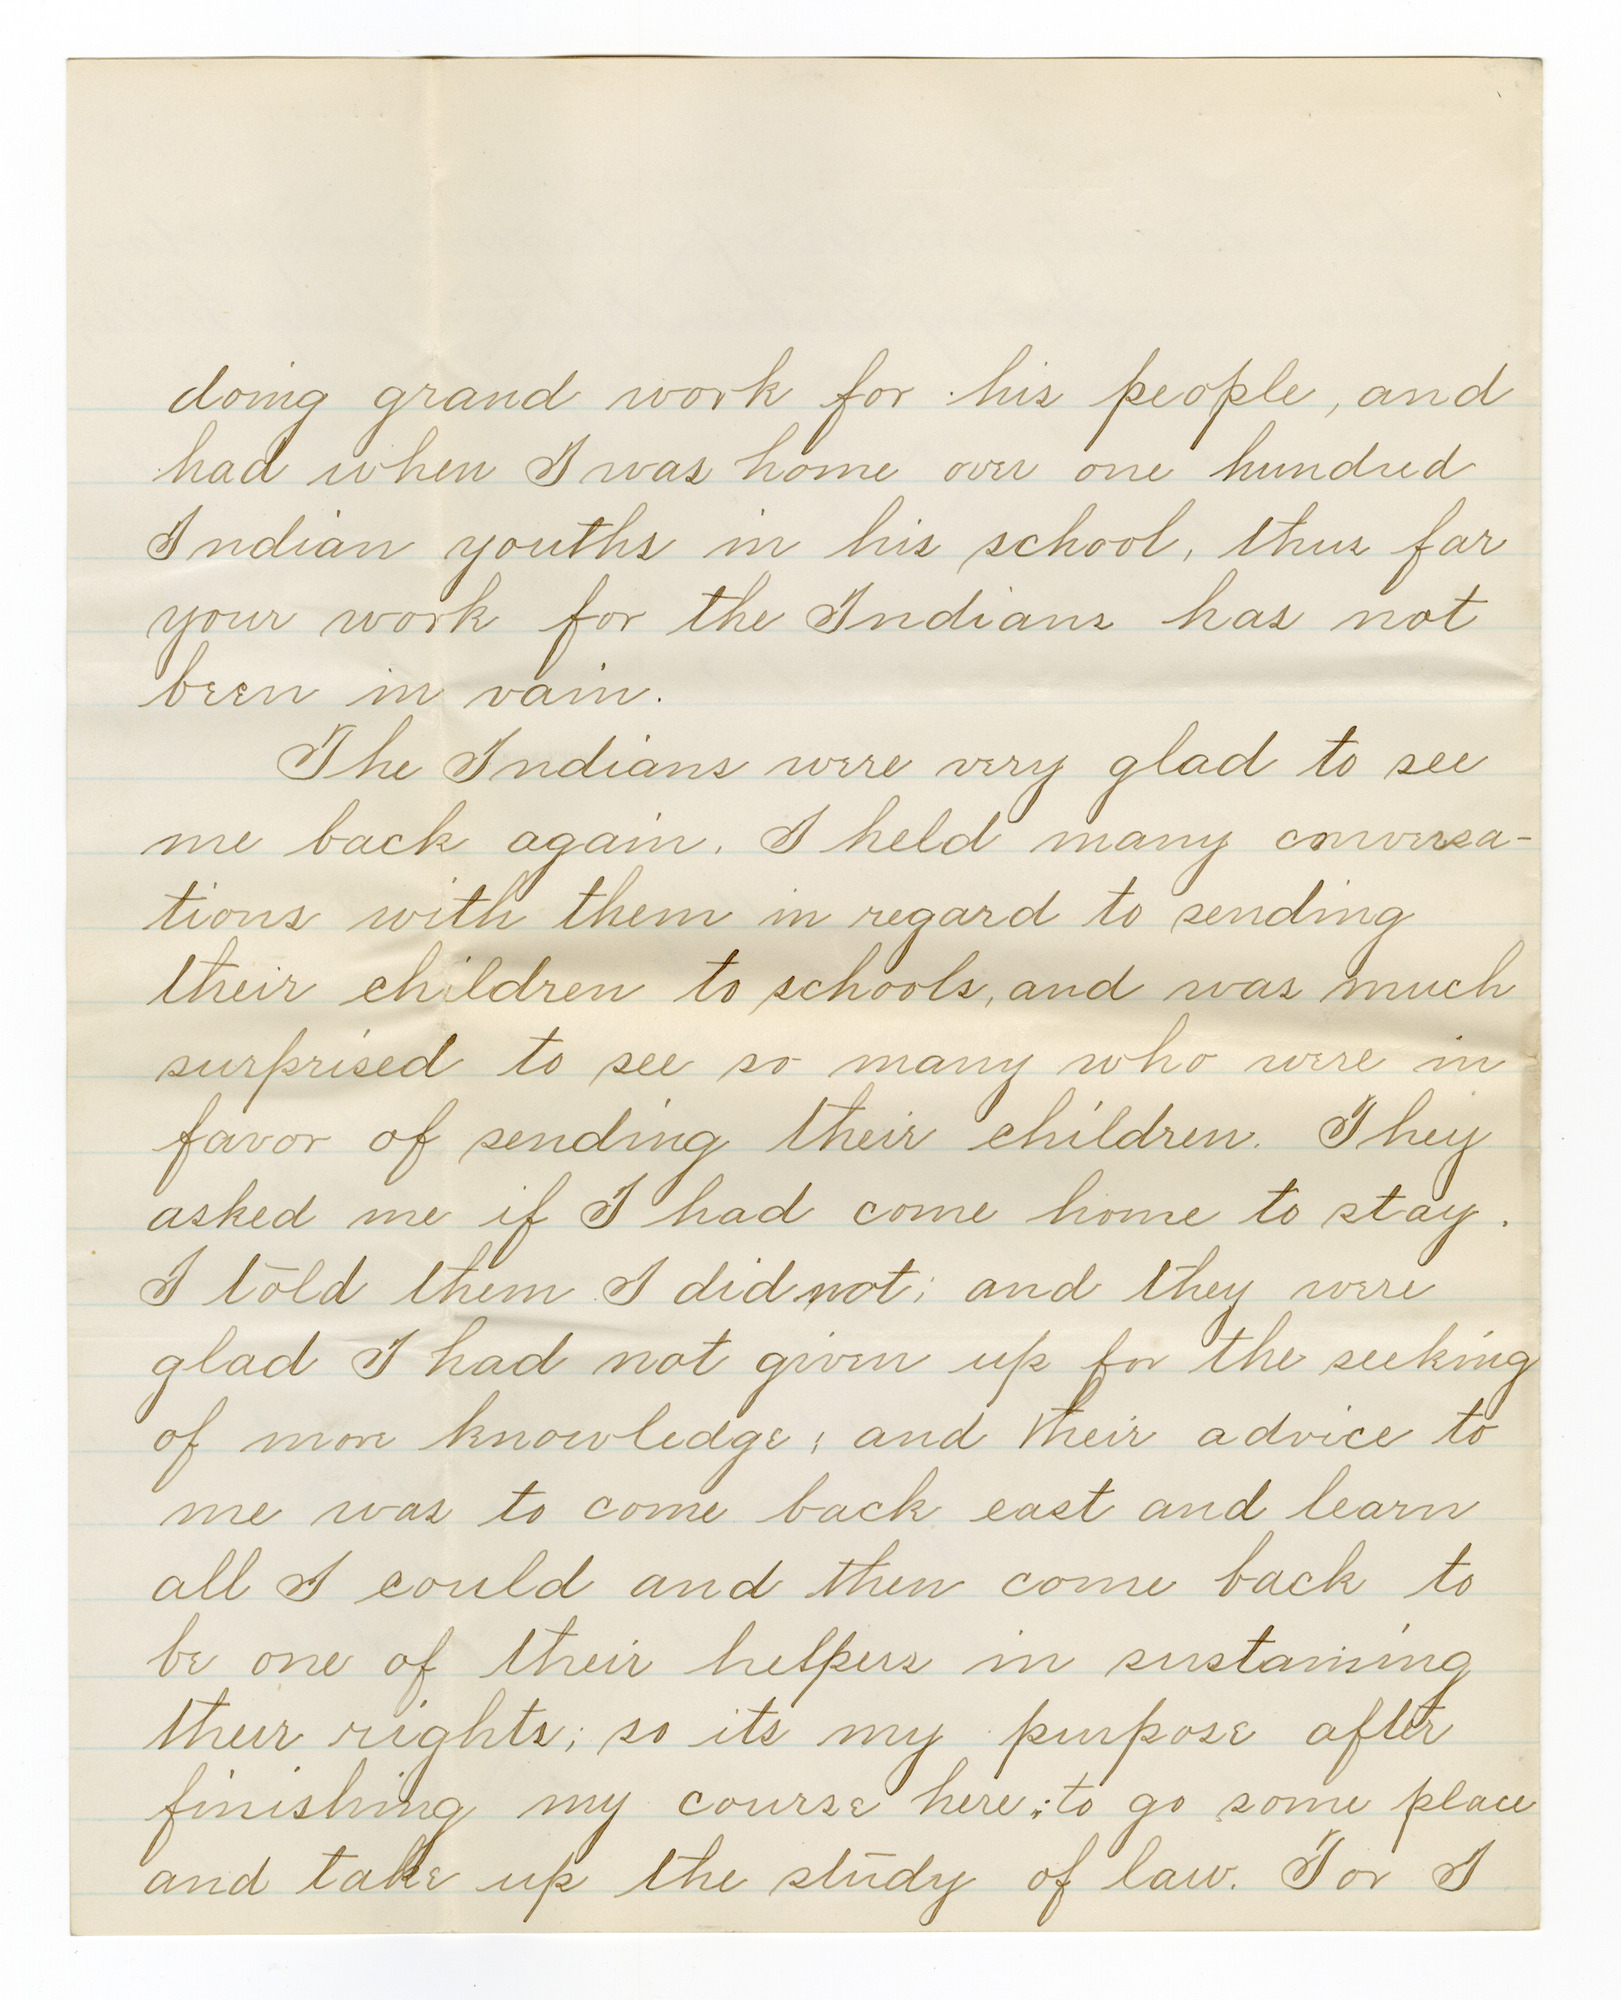 doing grand work for his people, and
had when I was home over one hundred
Indian youths in his school, thus far
your work for the Indians has not
been in vain.
The Indians were very glad to see
me back again. I held many conversa-
tions with them in regard to sending
their children to schools, and was much
surprised to see so many who were in
favor of sending their children. They
asked me if I had come home to stay.
I told them I did not; and they were
glad I had not given up for the seeking
of more knowledge; and their advice to
me was to come back east and learn
all I could and then come back to
be one of their helpers in sustaining
their rights; so its my purpose after
finishing my course here; to go some place
and take up the study of law. For I